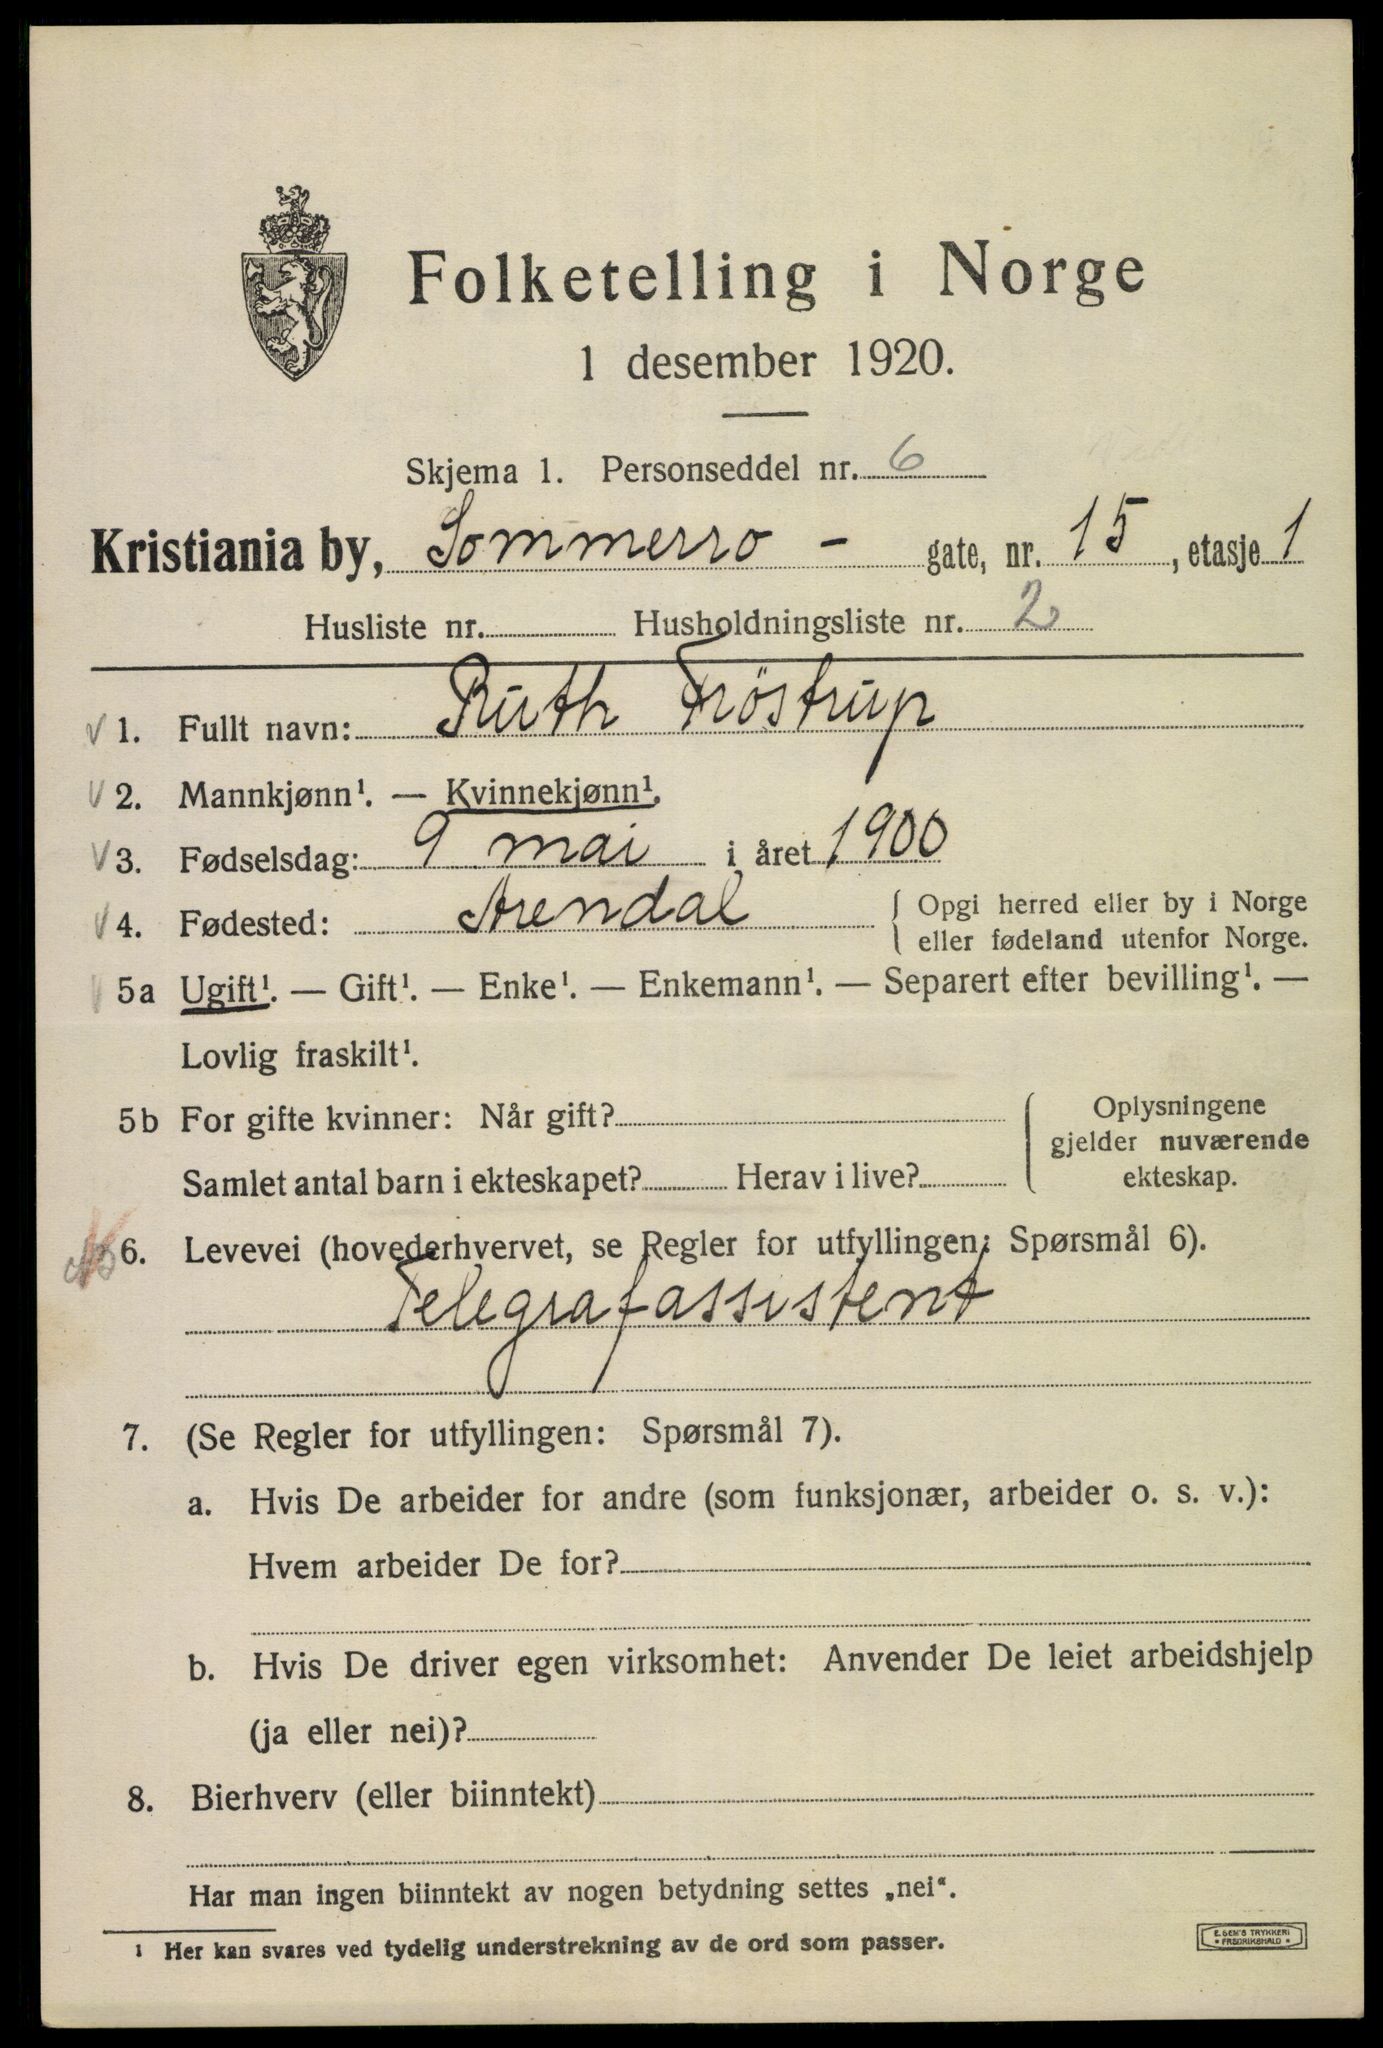 Folketelling i Norge
1 desember 1920.
Skjema 1. Personseddel nr. 6
Kristiania by, Sommerro - gate, nr. 15, etasje 1
Husliste nr. Husholdningsliste nr. 2
1. Fullt navn: Ruth Fröstrup
2. Mannkjønn¹. — Kvinnekjønn¹.
3. Fødselsdag: 9 mai i året 1900
4. Fødested: Arendal { Opgi herred eller by i Norge
eller fødeland utenfor Norge.
5a Ugift¹. — Gift¹. — Enke¹. — Enkemann¹. — Separert efter bevilling¹. —
Lovlig fraskilt¹.
5b For gifte kvinner: Når gift?
Samlet antal barn i ekteskapet? Herav i live?
Oplysningene
gjelder nuværende
ekteskap.
6. Levevei (hovederhvervet, se Regler for utfyllingen: Spørsmål 6).
Telegrafassistent
7. (Se Regler for utfyllingen: Spørsmål 7).
a. Hvis De arbeider for andre (som funksjonær, arbeider o. s. v.):
Hvem arbeider De for?
b. Hvis De driver egen virksomhet: Anvender De leiet arbeidshjelp
(ja eller nei)?
8. Bierhverv (eller biinntekt)
Har man ingen biinntekt av nogen betydning settes „nei“.
¹ Her kan svares ved tydelig understrekning av de ord som passer.
E. SEM'S TRYKKERI
• FREDRIKSHALD •